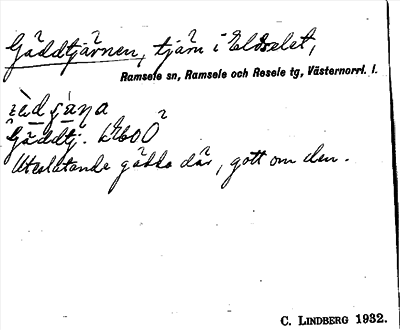 Gäddtjärnen, tjärn i Eldselet,
Ramsele sn, Ramsele och Resele tg, Västernorrl. l.
Gäddtj.
Uteslutande gäddo där, gott om den.
C. LINDBERG 1932.